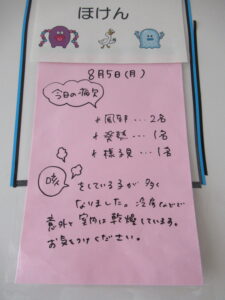 ほけん
8月5日(月)
今日の病欠
＊風邪…2名
＊発熱…1名
＊様子見…1名
咳 をしている子が多く
なりました。冷房などで
意外と室内は乾燥しています。
お気をつけください。